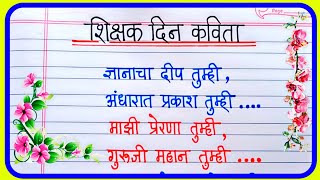 शिक्षक दिन कविता
ज्ञानाचा दीप तुम्ही,
अंधारात प्रकाश तुम्ही ....
माझी प्रेरणा तुम्ही,
गुरूजी महान तुम्ही ....